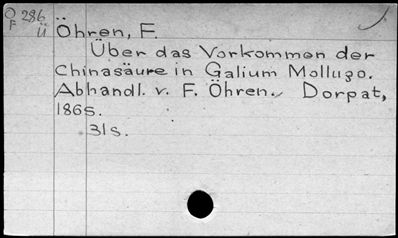 O 286
F Ü
Öhren, F.
Über das Vorkommen der
Chinasäure in Galium Mollugo.
Abhandl. v. F. Öhren. Dorpat,
1865.
31s.